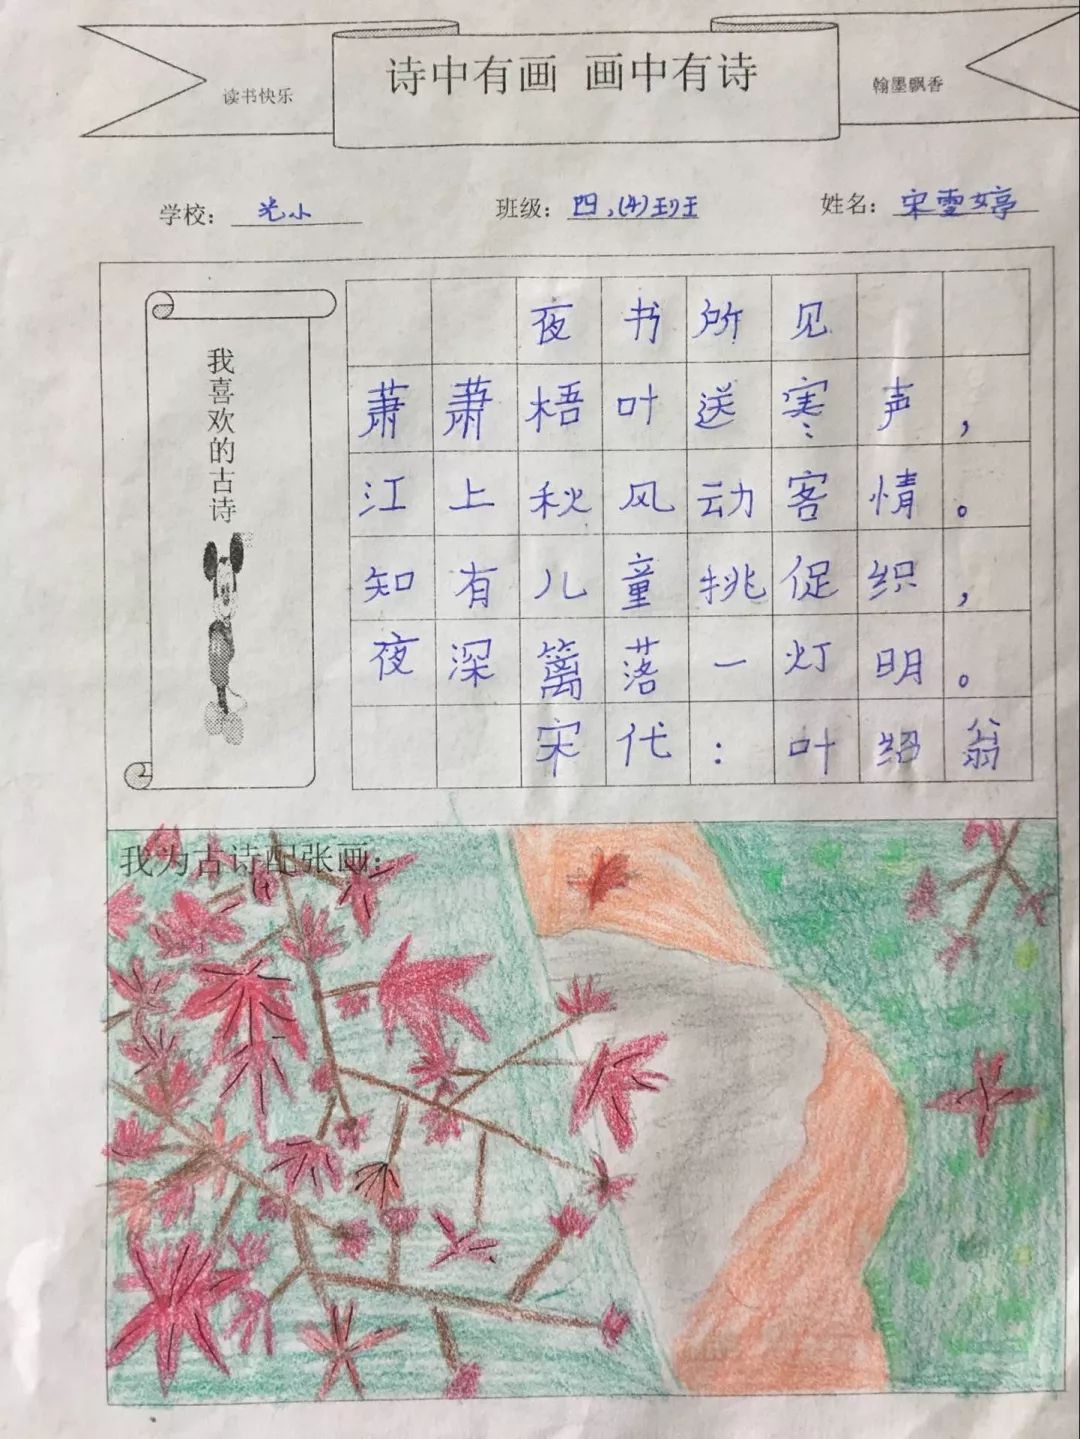 诗中有画 画中有诗
读书快乐
翰墨飘香
学校：光小 班级：四.(4)班 姓名：宋雪婷
我喜欢的古诗
夜书所见
萧萧梧叶送寒声，
江上秋风动客情。
知有儿童挑促织，
夜深篱落一灯明。
宋代：叶绍翁
我为古诗配张画：